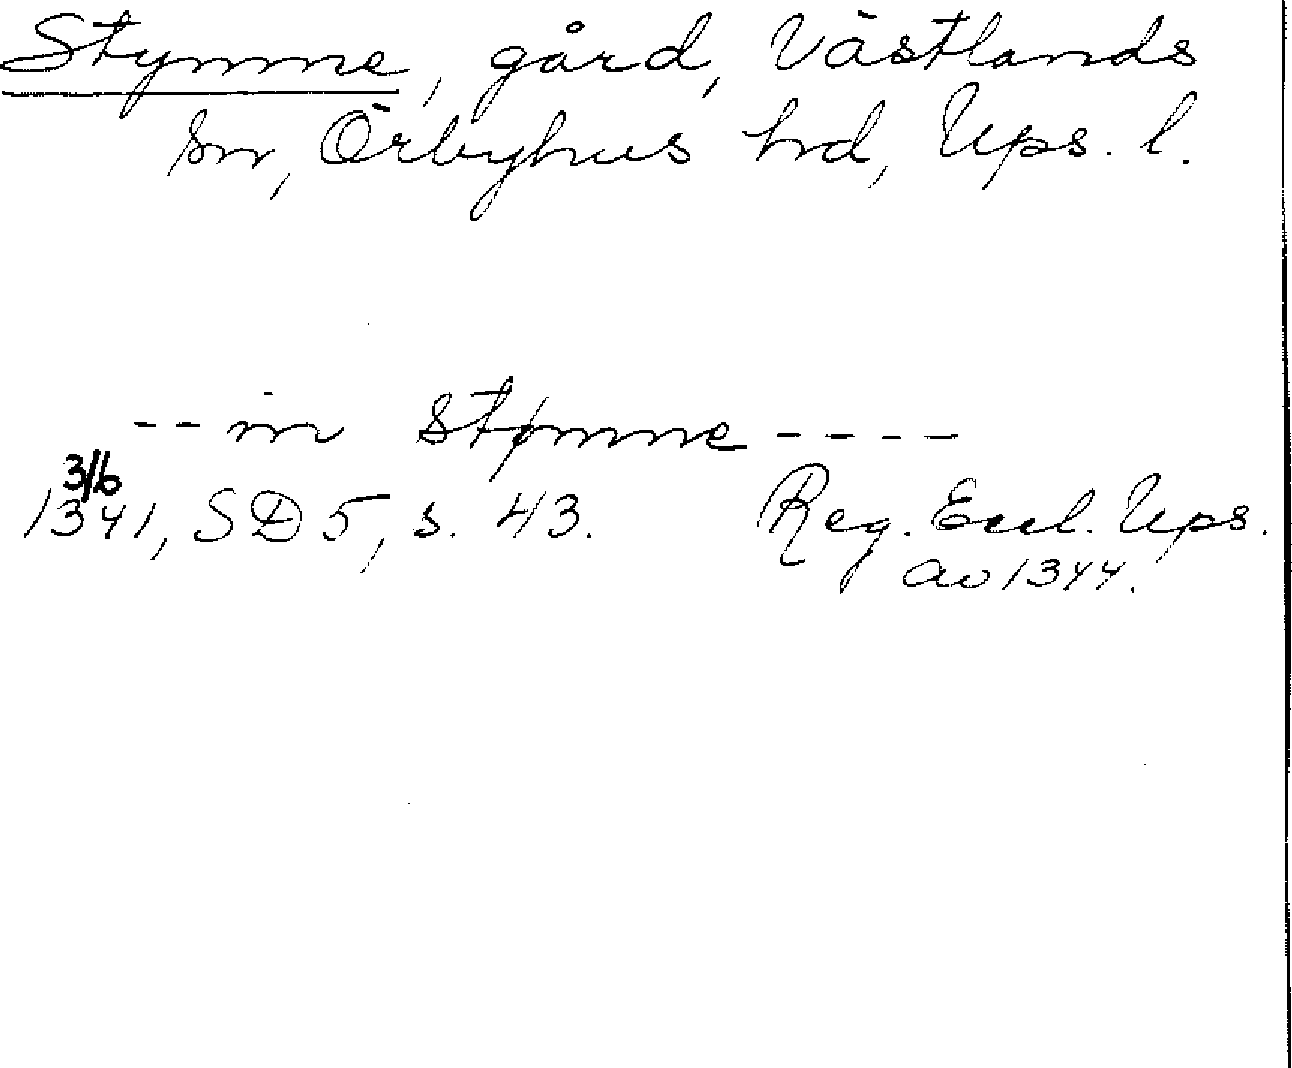 Stymne, gård, Västlands
sn, Örbyhus hd, Ups. l.
-- in Stømne ----
3/6
1341, SD 5, s. 43. Reg. Eccl. Ups.
av 1344.